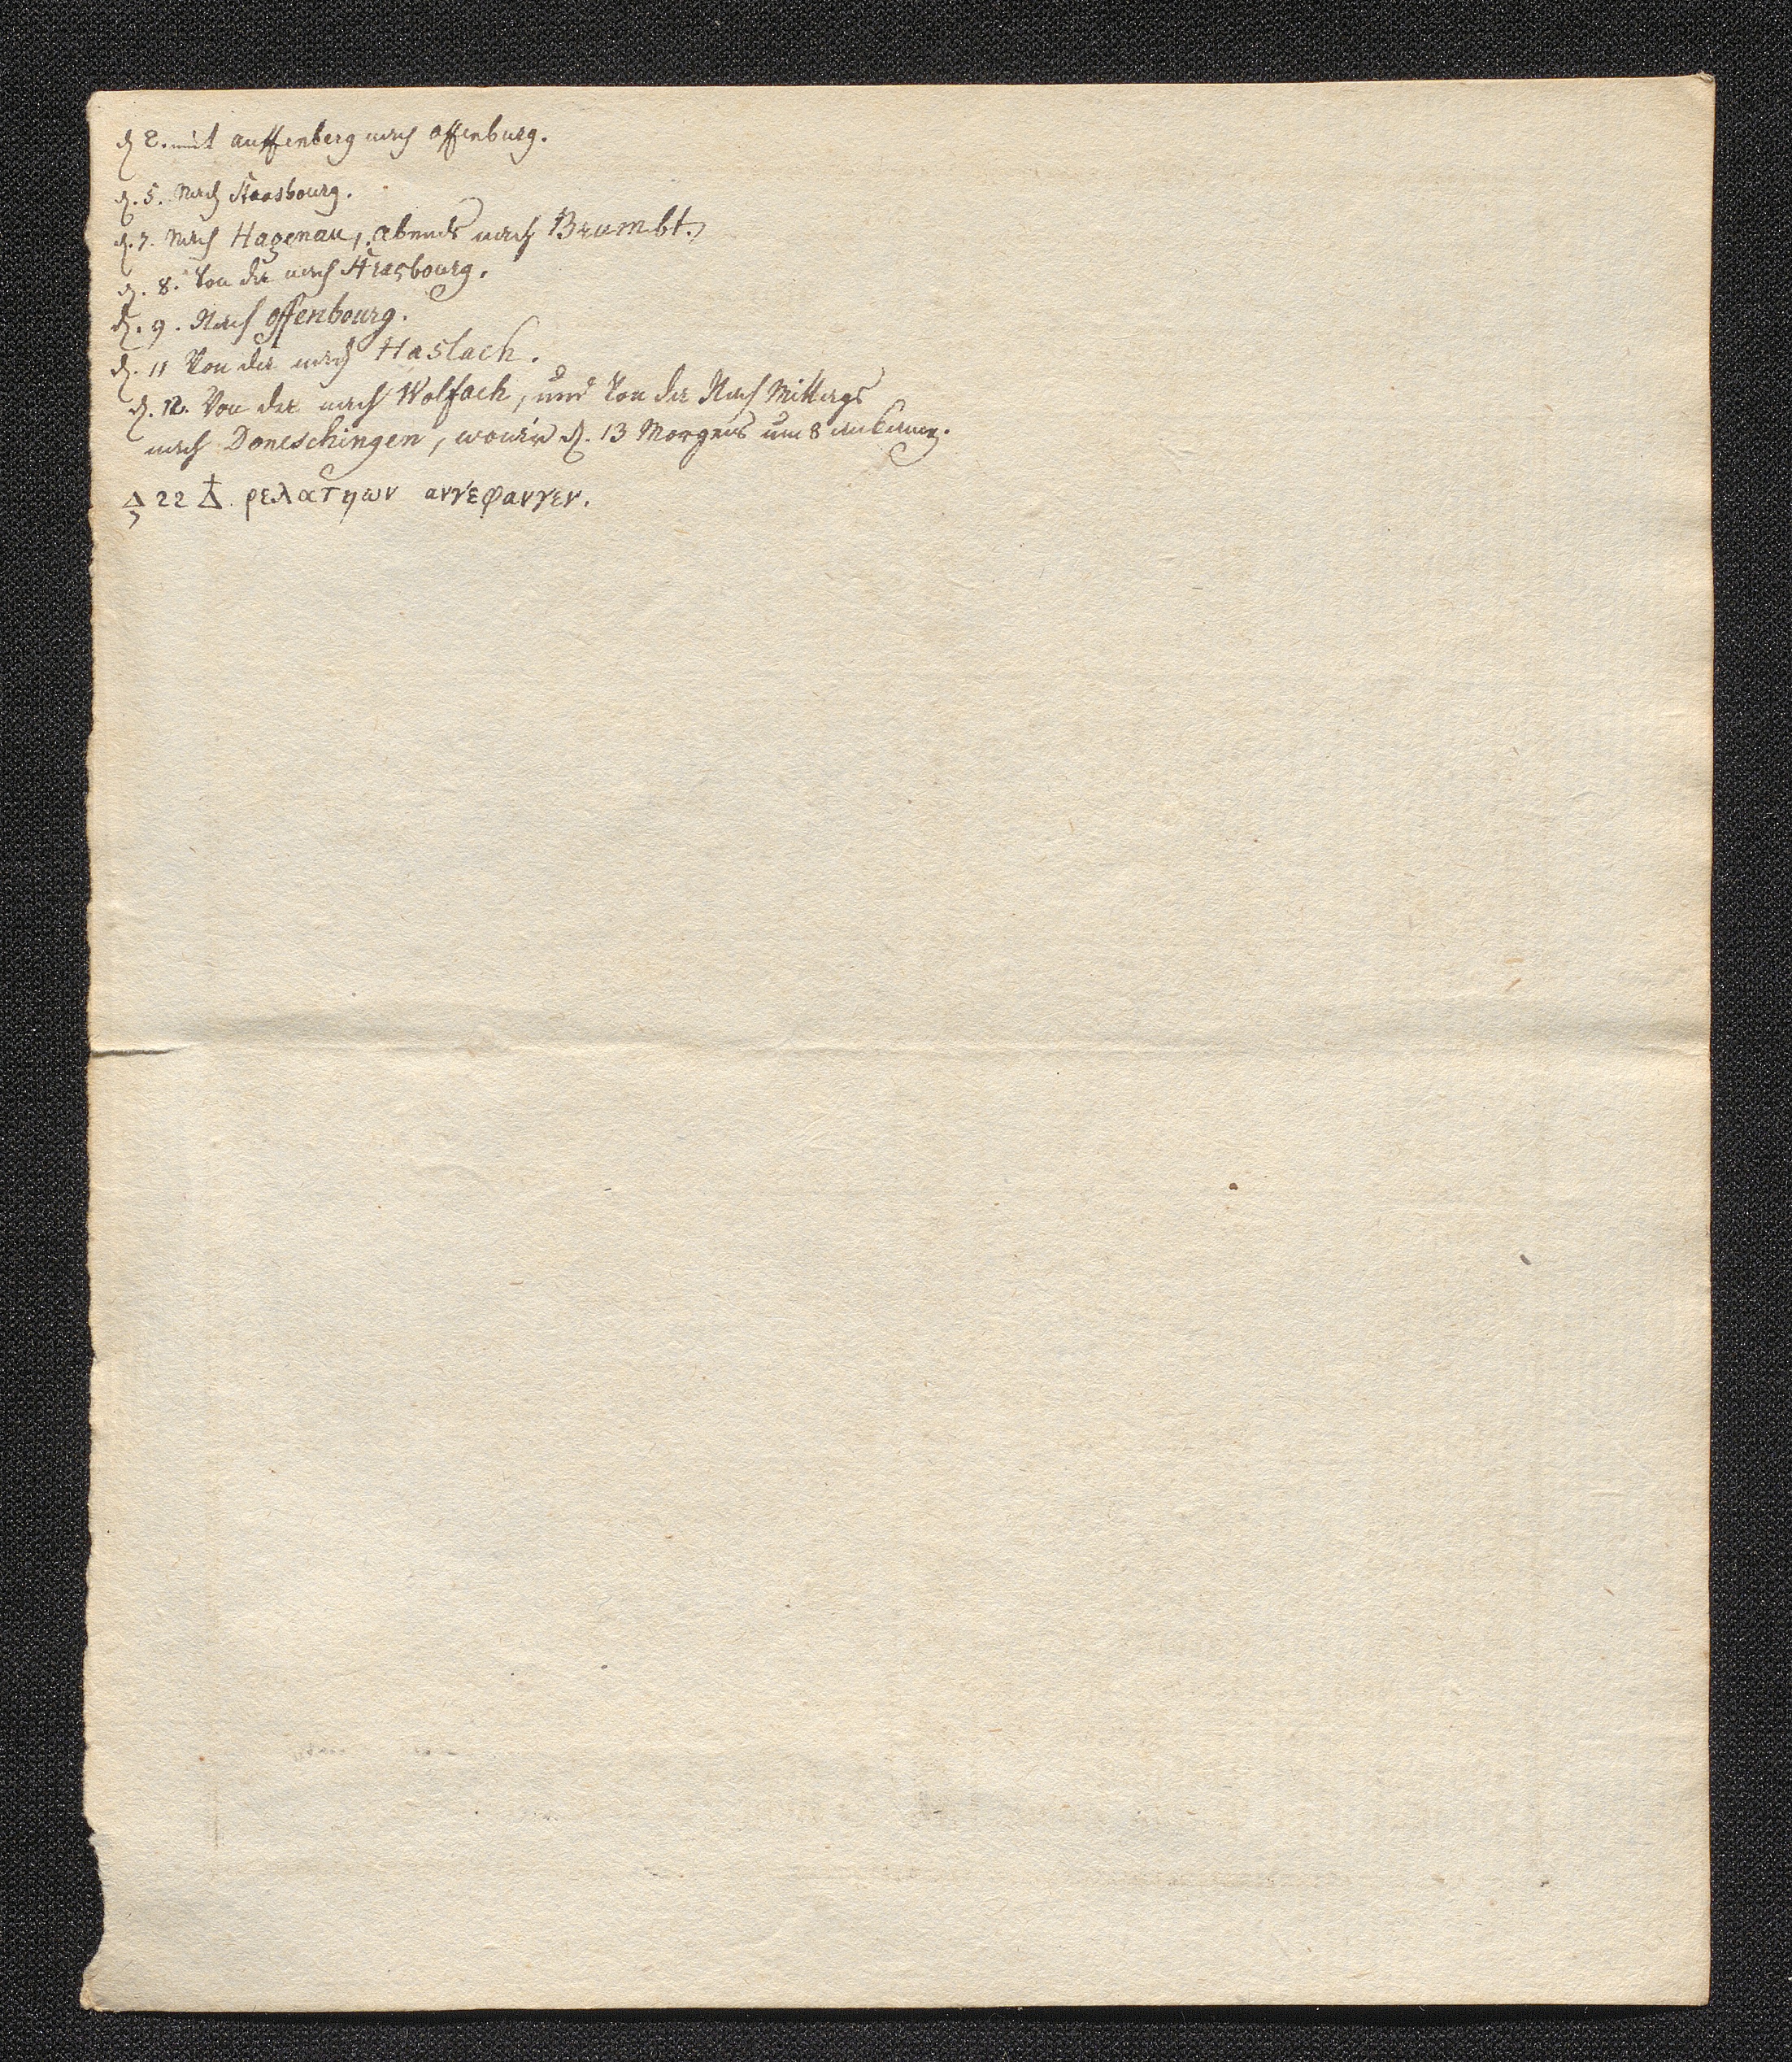 d. 2. mit auffenberg nach offenburg.
d. 5. Nach Strasbourg.
d. 7. Nach Hagenau, abends nach Brumbt.
d. 8. Von da nach Strasbourg.
d. 9. Nach offenbourg.
d. 11 Von da nach Haslach.
d. 12. Von da nach Wolfach, und von da Nach Mittags
nach Doneschingen, wo wir d. 13 Morgens um 8 ankamen.
Δ 22 Δ. ρελατηων ανγεφανγεν.